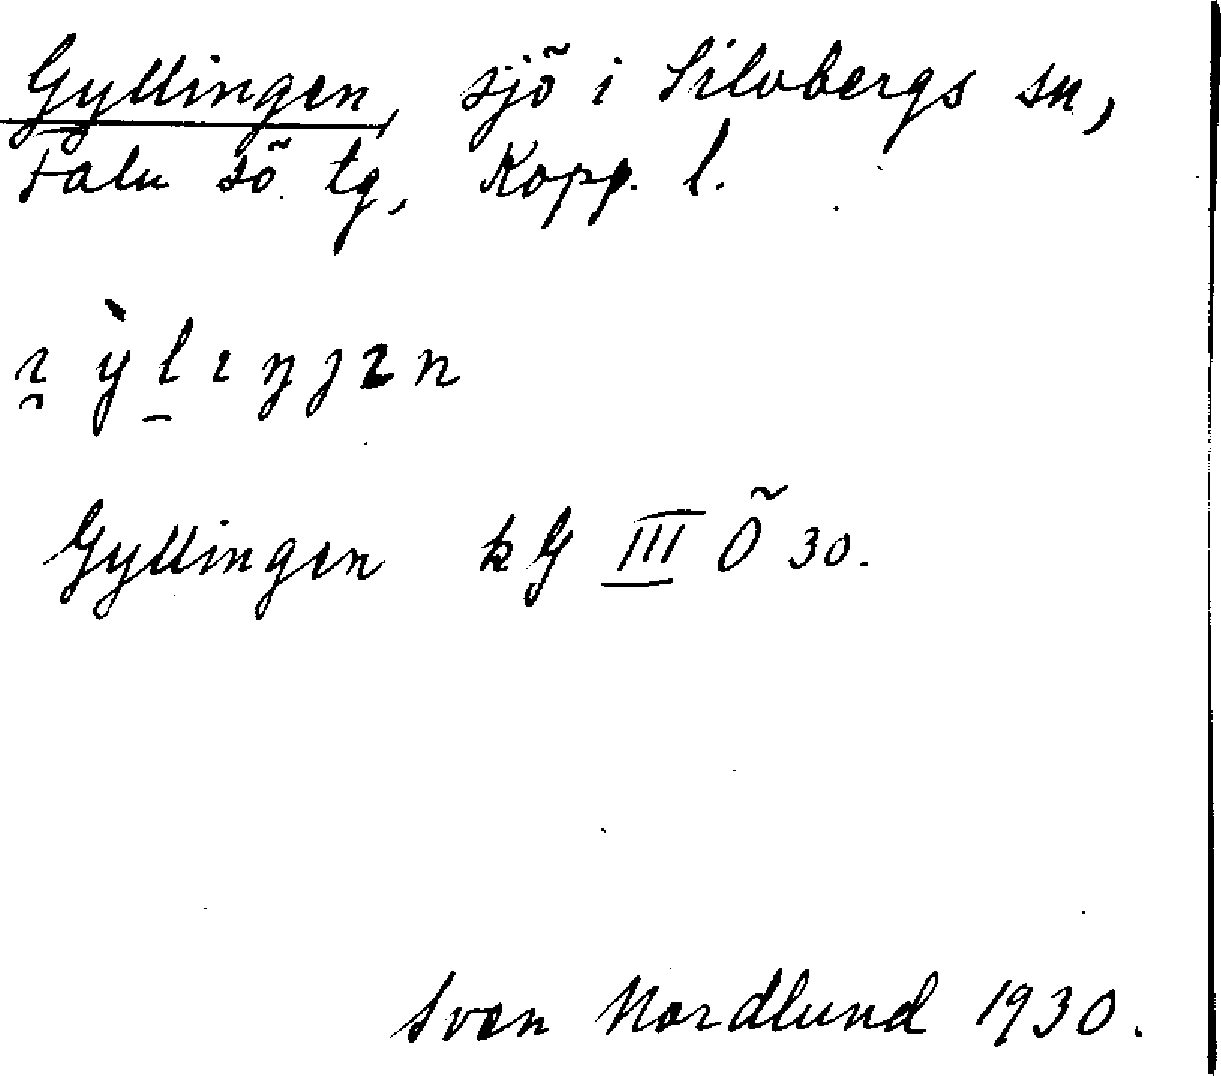 Gyllingen, sjö i Silvbergs sn,
Falu sö tg, Kopp. l.
Gyllingen kG III Ö 30.
Sven Nordlund 1930.